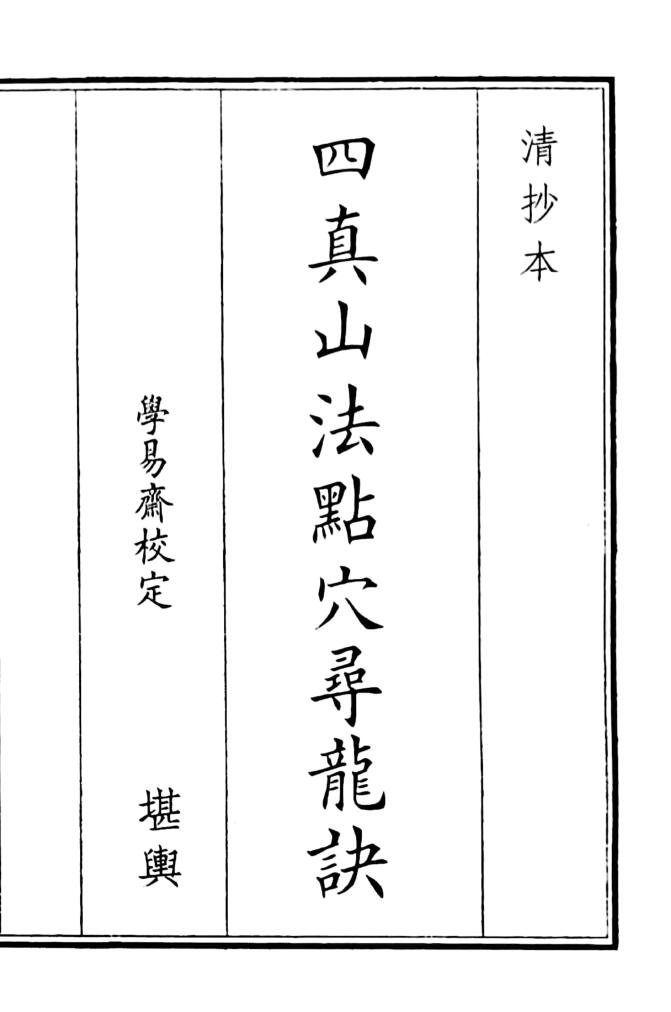 清抄本
四真山法點穴尋龍訣
學易齋校定
堪輿